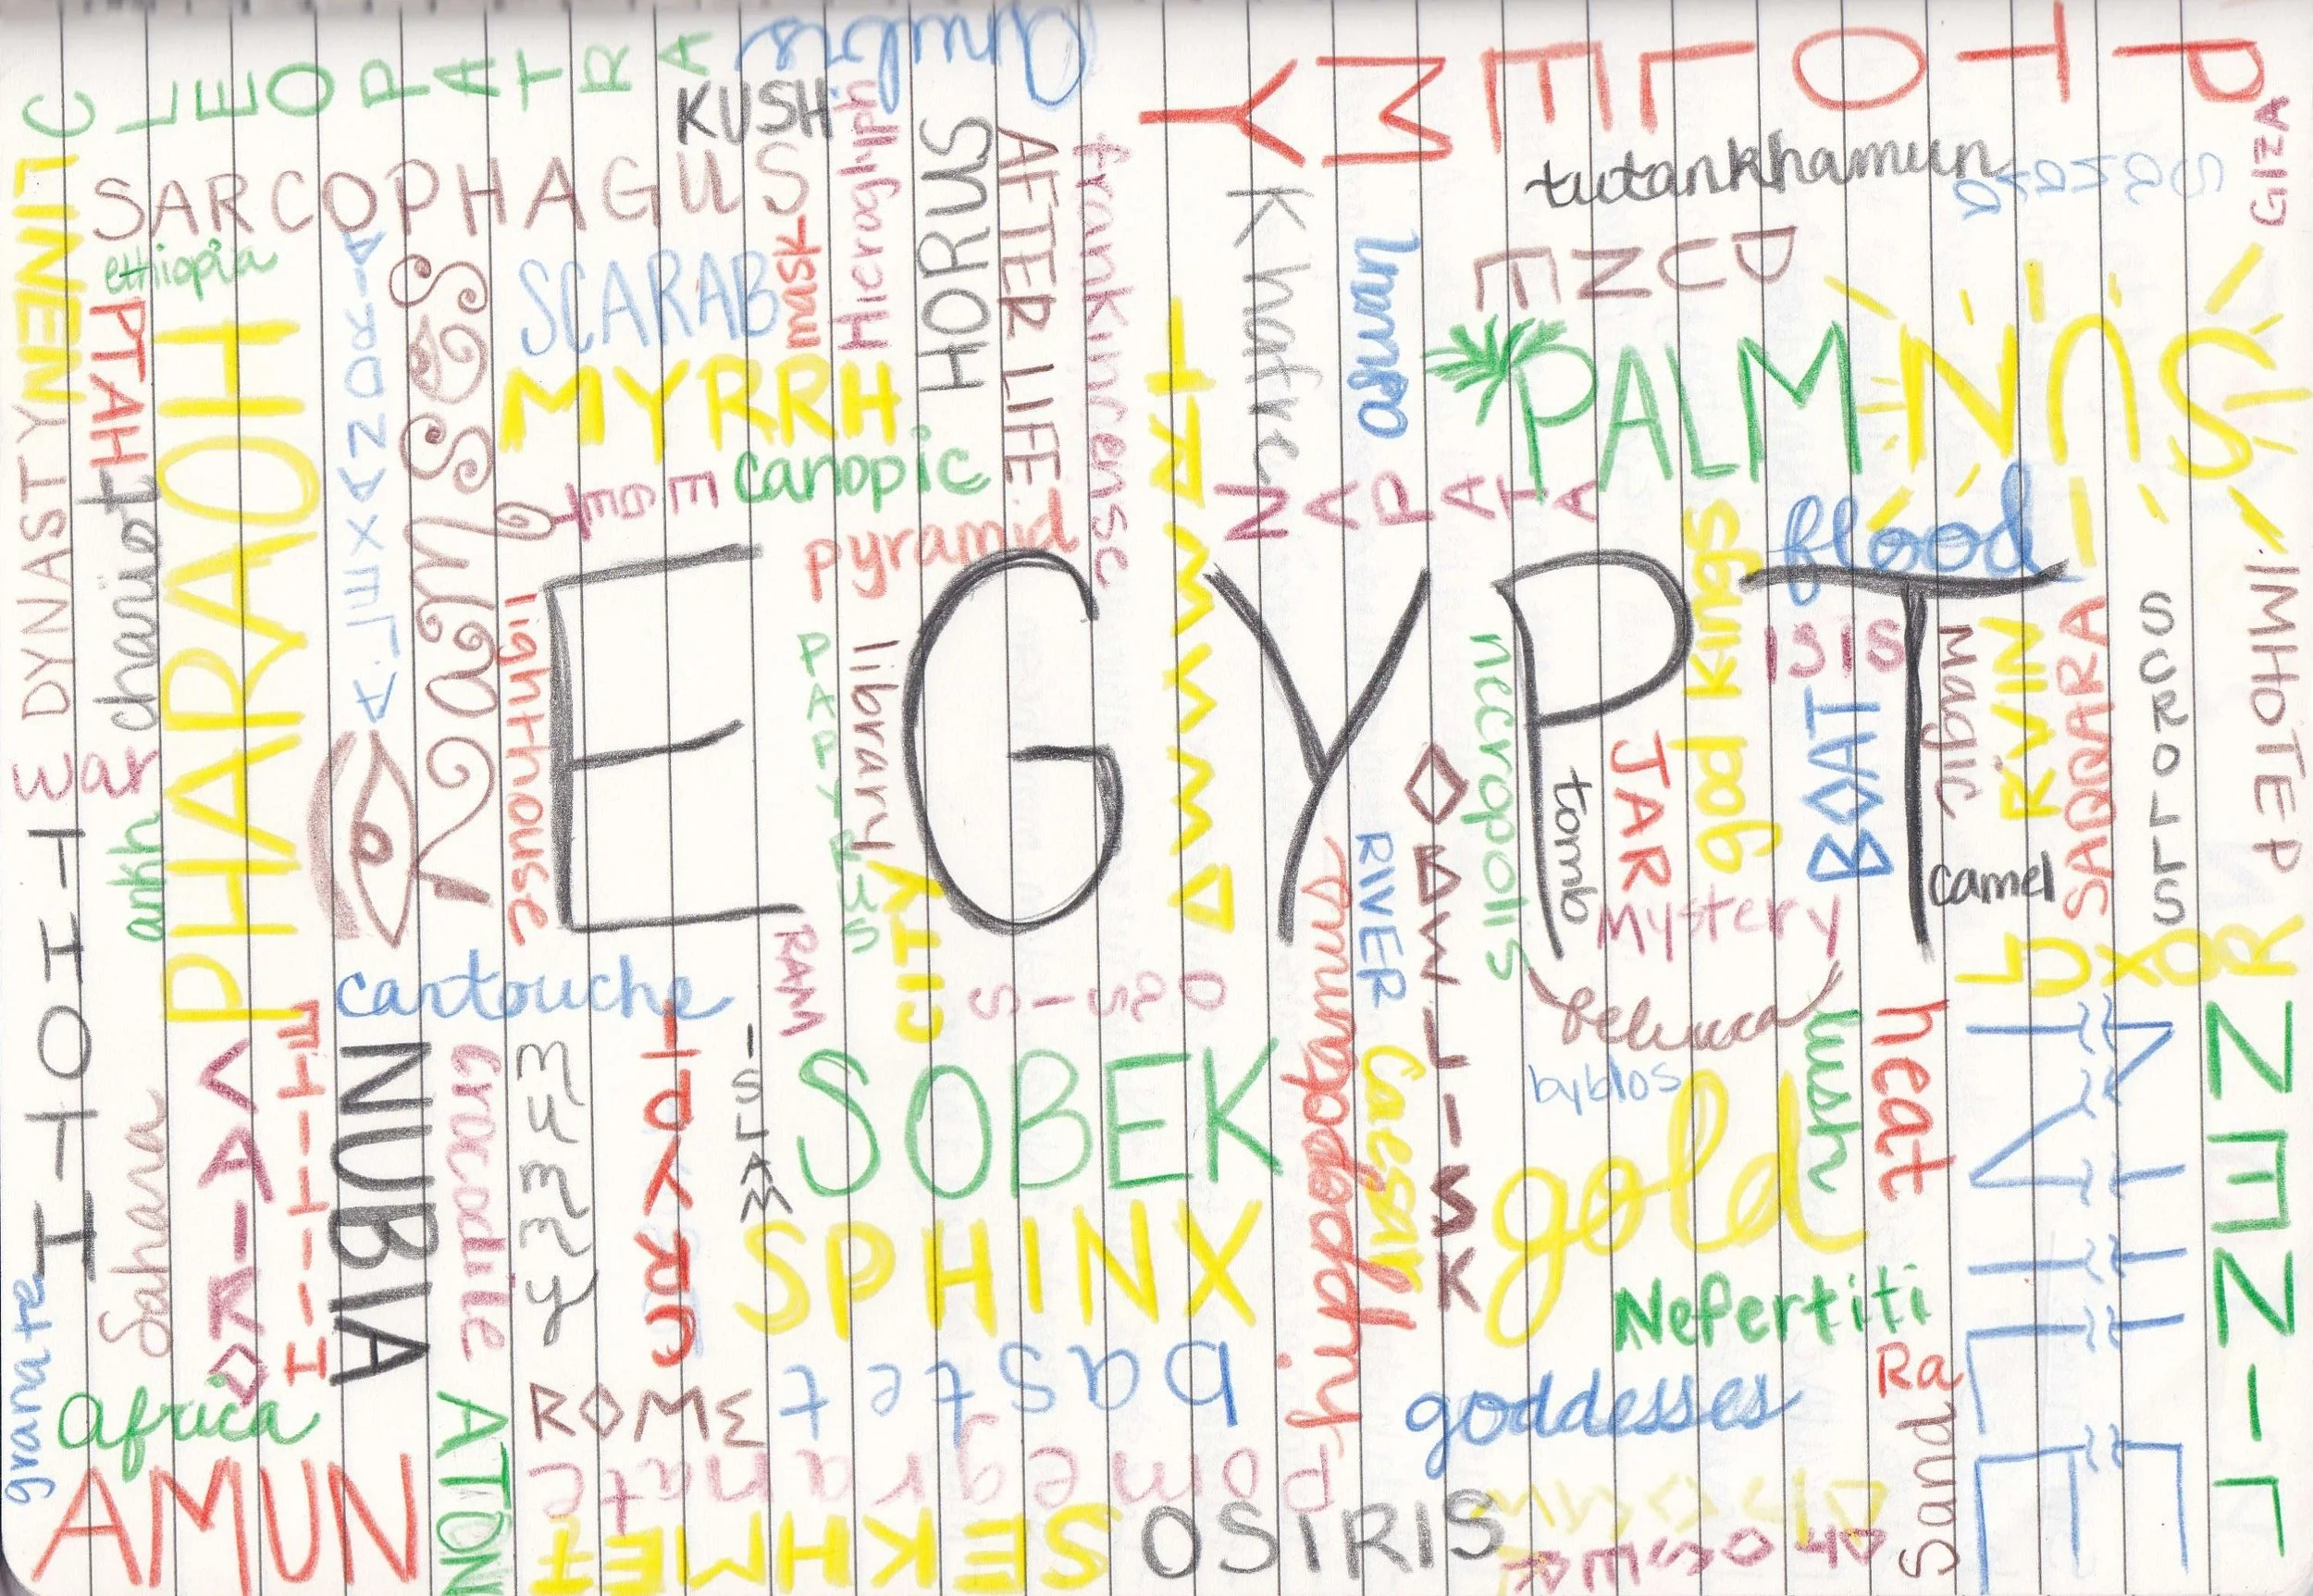 CLEOPATRA
anubis
PTOLEMY
KUSH
GIZA
SARCOPHAGUS
Hieroglyph
HORUS
AFTER LIFE
frankincense
Khafre
tutankhamun
LINEN
ethiopia
SCARAB
mask
aswan
DUNE
PTAH
PHARAOH
ALEXANDRIA
Ramses
MYRRH
PALM
SUN
DYNASTY
chariot
canopic
NAPATA
pyramid
flood
EGYPT
lighthouse
PAPYRUS
library
necropolis
god kings
ISIS
Magic
RUIN
SAQQARA
SCROLLS
IMHOTEP
war
ankh
OBELISK
tomb
JAR
BOAT
camel
THOTH
RIVER
Mystery
cartouche
RAM
CITY
OASIS
hippopotamus
felucca
LUXOR
CAIRO
NUBIA
crocodile
ISLAM
SOBEK
Caesar
byblos
lush
heat
Sahara
SPHINX
gold
Nefertiti
granate
Africa
ROME
bastet
goddesses
Ra
Sand
AMUN
ATON
pomegranate
SEKHMET
OSIRIS